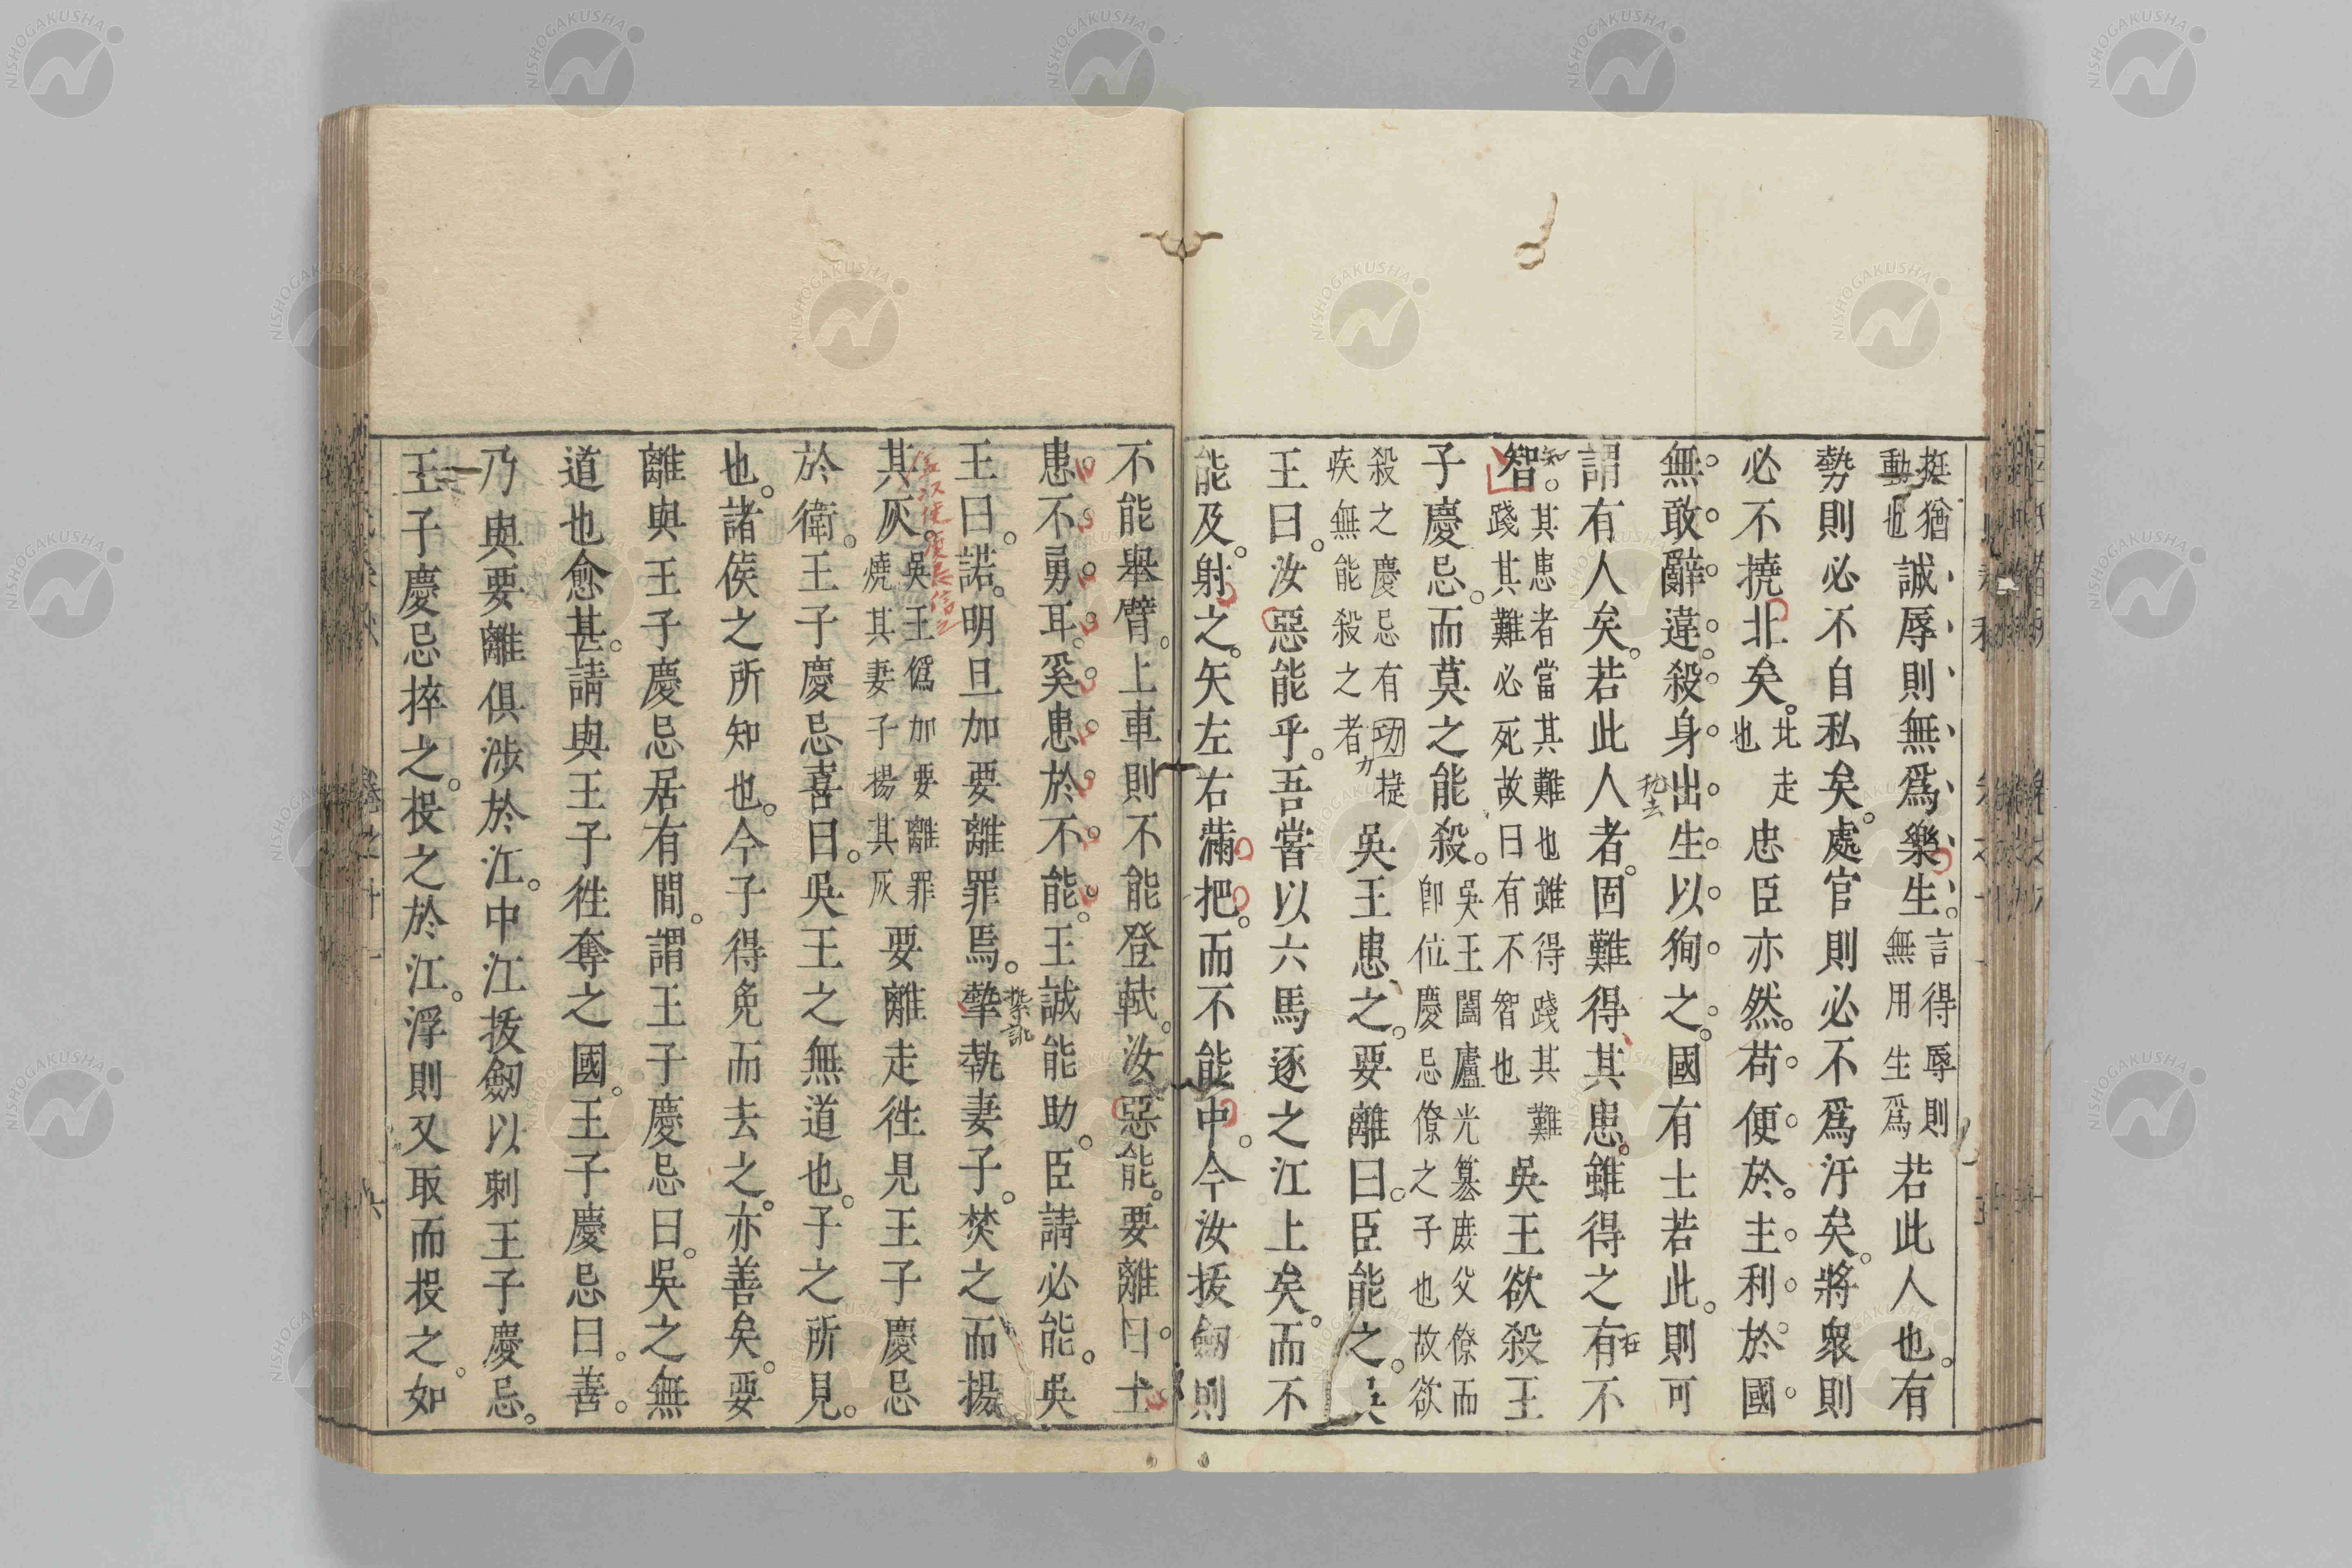 挺猶動也誠辱則無爲樂生。言得辱則無用生爲若此人也。有
勢則必不自私矣。處官則必不爲汙矣。將衆則
必不撓北矣。北走也忠臣亦然。苟便於主利於國
無敢辭違殺身出生以徇之。國有士若此。則可
謂有人矣。若此人者。固難得其患。雖得之有不
智。其患者當其難也雖得踐其難踐其難必死故曰有不智也吳王欲殺王
子慶忌。而莫之能殺。吳王闔廬光簒庻父僚而卽位慶忌僚之子也故欲
殺之慶忌有㓛㨗疾無能殺之者吳王患之。要離曰。臣能之。吳
王曰。汝惡能乎。吾嘗以六馬逐之江上矣。而不
能及。射之。矢左右滿把。而不能中。今汝拔劒則
不能舉臂。上車則不能登軾。汝惡能。要離曰。士
患不勇耳。奚患於不能。王誠能助。臣請必能。吳
王曰。諾。明旦加要離罪焉。摯執妻子。焚之而揚
其灰。吳王僞加要離罪燒其妻子揚其灰要離走徃見王子慶忌
於衛。王子慶忌喜曰。吳王之無道也。子之所見
也。諸侯之所知也。今子得免而去之。亦善矣。要
離與王子慶忌居有間。謂王子慶忌曰。吳之無
道也愈甚。請與王子徃奪之國。王子慶忌曰。善。
乃與要離俱涉於江。中江拔劒以刺王子慶忌。
王子慶忌捽之。投之於江。浮則又取而投之。如
NISHOGAKUSHA